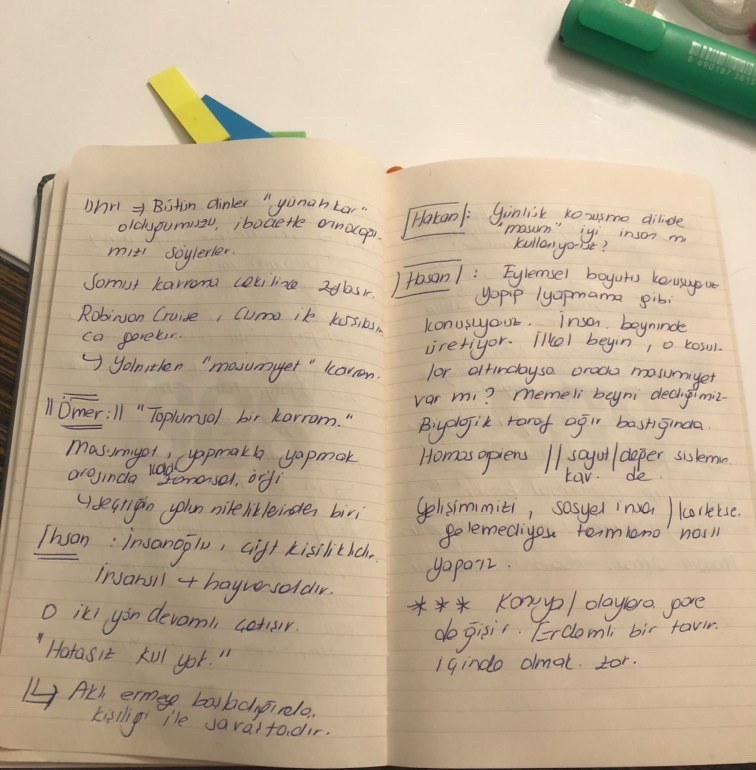 ⇒ Bütün dinler "günahkar"
olduğumuzu, ibadetle
mızı söylerler.
Somut kavrama
Robinson Cruise, Cuma ile
ca gerekir.
↳ Yalnızken "masumiyet" kavram.
|| Ömer: || "Toplumsal bir kavram."
Masumiyet, yapmakla yapmak
arasında örfi
seçtiğin yolun niteliklerinden biri
İhsan : İnsanoğlu, çift kişiliklidir.
İnsansıl + hayvansaldır.
O iki yön devamlı çatışır.
"Hatasız kul yok."
↳ Aklı ermeye başladığında,
kişiliği ile savaştadır.
Hakan|: Günlük konuşma dilinde
"masum" iyi insan mı
kullanıyoruz?
Hasan| : Eylemsel boyutu konuşuyoruz
yapıp / yapmama gibi
konuşuyoruz. İnsan beyninde
üretiyor. İlkel beyin, o koşul-
lar altındaysa orada masumiyet
var mı? Memeli beyni dediğimiz-
Biyolojik taraf ağır bastığında.
Homosapiens || soyut / değer sistemin.
kav. de.
Gelişimimizi, sosyal insan
gelemediyse tanımlama nasıl
yaparız.
*** Konuya / olaylara göre
değişir. Erdemli bir tavır.
içinde olmak zor.
8 690187